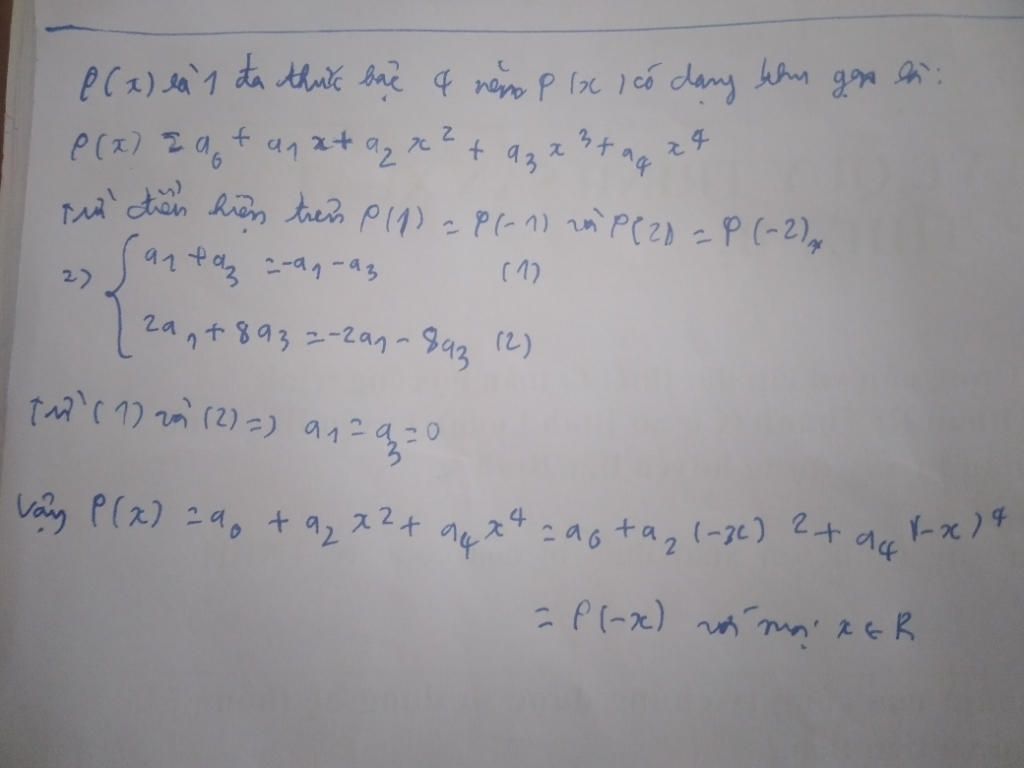 P(x) là 1 đa thức bậc 4 nên P(x) có dạng thu gọn là:
P(x) = a₀ + a₁x + a₂x² + a₃x³ + a₄x⁴
Từ điều kiện trên P(1) = P(-1) và P(2) = P(-2)
=> { a₁ + a₃ = -a₁ - a₃ (1)
2a₁ + 8a₃ = -2a₁ - 8a₃ (2)
Từ (1) và (2) => a₁ = a₃ = 0
Vậy P(x) = a₀ + a₂x² + a₄x⁴ = a₀ + a₂(-x)² + a₄(-x)⁴
= P(-x) với mọi x ∈ R